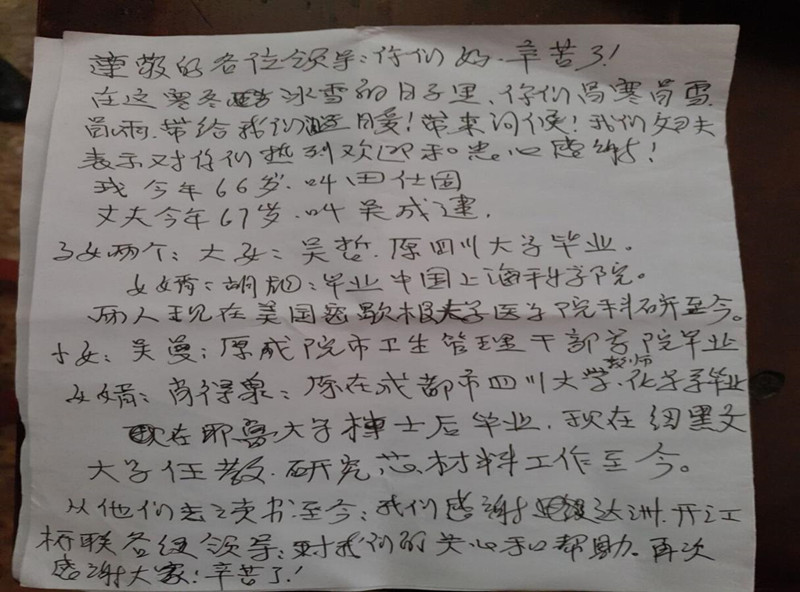 尊敬的各位领导:你们好.辛苦了!
在这寒冬酷冰雪的日子里、你们冒寒冒雪
冒雨.带给我们温暖!带来问候!我们妇夫
表示对你们热列欢迎和忠心感谢!
我今年66岁.叫田仕固
丈夫今年67岁.叫吴成建.
子女两个:大女:吴哲.原四川大学毕业。
女婿:胡旭:毕业中国上海科学院。
两人现在美国密歇根大学医学院科研至今。
小女:吴曼:原成院市卫生管理干部学院毕业
教师
女婿:肖得泉:原在成都市四川大学.化学系毕业
现在耶鲁大学博士后毕业.现在纽黑文
大学任教.研究芯材料工作至今。
从他们去读书至今:我们感谢达洲.开江
桥联各级领导:对我们的关心和帮助.再次
感谢大家:辛苦了!